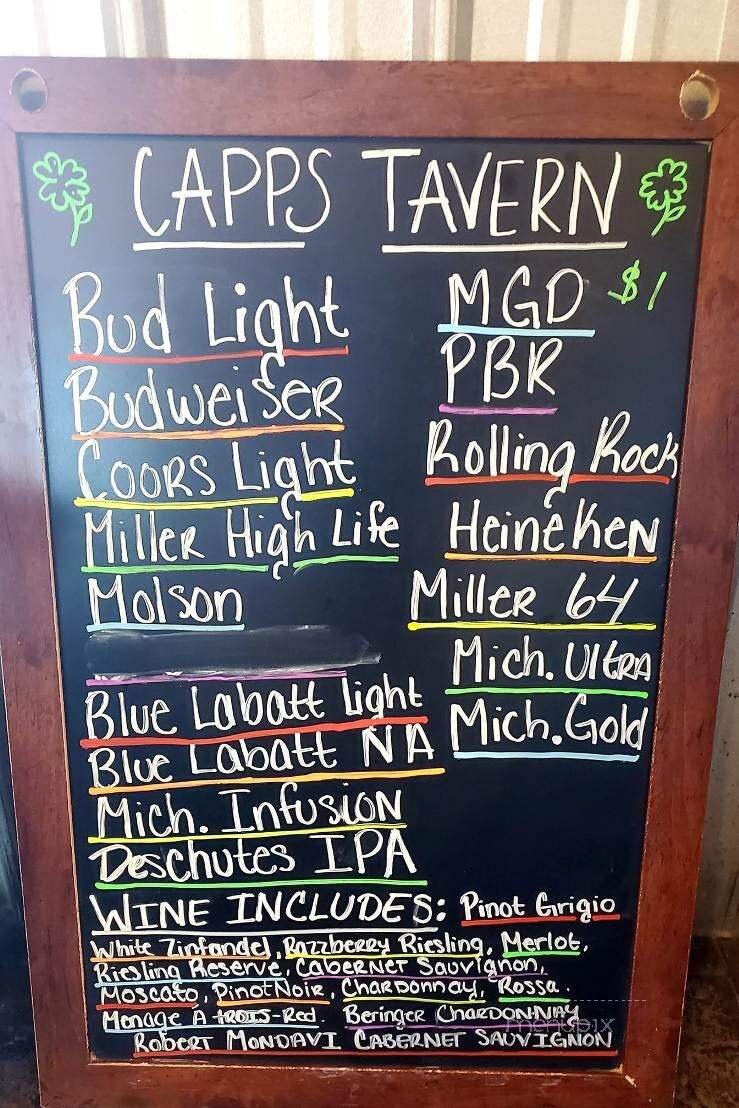 CAPPS TAVERN
Bud Light
Budweiser
Coors Light
Miller High Life
Molson
Blue Labatt Light
Blue Labatt NA
Mich. Infusion
Deschutes IPA
MGD $1
PBR
Rolling Rock
Heineken
Miller 64
Mich. Ultra
Mich. Gold
WINE INCLUDES: Pinot Grigio
White Zinfandel, Razzberry Riesling, Merlot,
Riesling Reserve, Cabernet Sauvignon,
Moscato, Pinot Noir, Chardonnay, Rossa.
Menage A trois-Red. Beringer Chardonnay
menupix
Robert Mondavi Cabernet Sauvignon